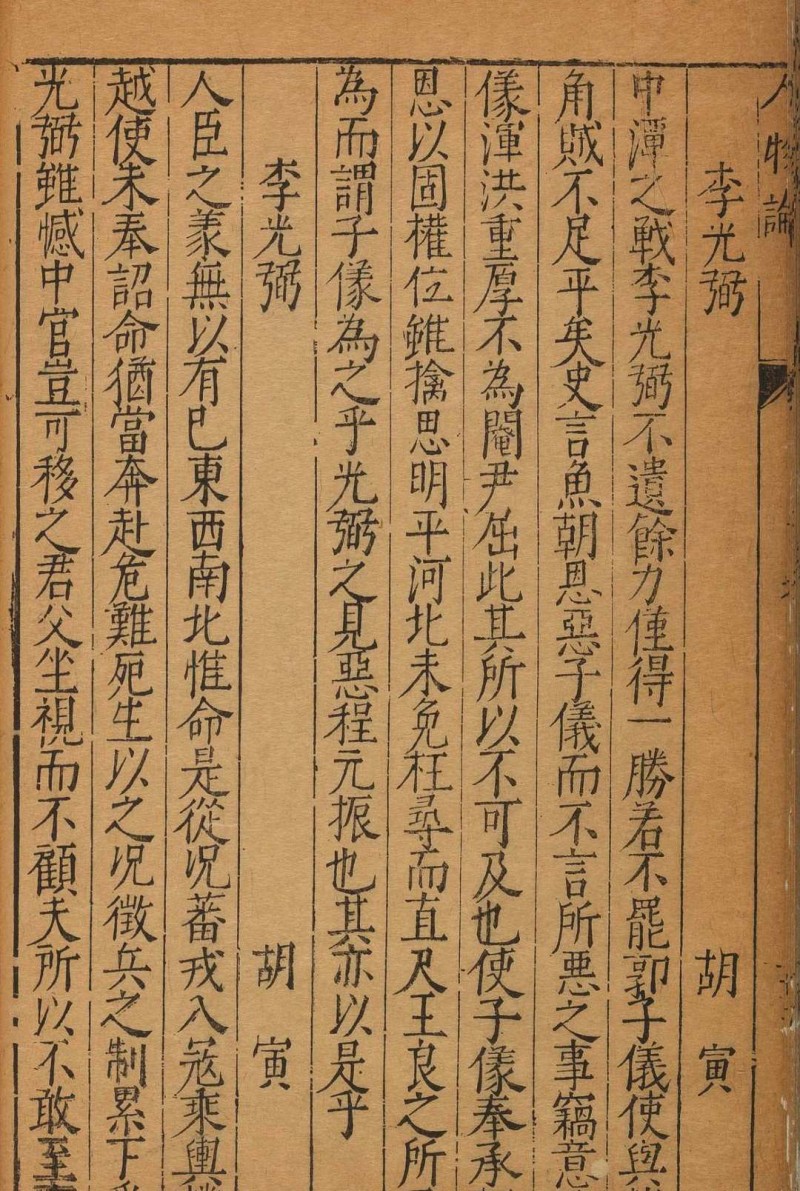 人物論
李光弼 胡寅
中潬之戰李光弼不遺餘力僅得一勝若不罷郭子儀使與
角賊不足平矣史言魚朝恩惡子儀而不言所惡之事竊意
儀渾洪重厚不為閹尹屈此其所以不可及也使子儀奉承
恩以固權位雖擒思明平河北未免枉尋而直尺王良之所
為而謂子儀為之乎光弼之見惡程元振也其亦以是乎
李光弼 胡寅
人臣之義無以有己東西南北惟命是從况蕃戎入冦乘輿
越使未奉詔命猶當奔赴危難死生以之况徵兵之制累下
光弼雖憾中官豈可移之君父坐視而不顧夫所以不敢至